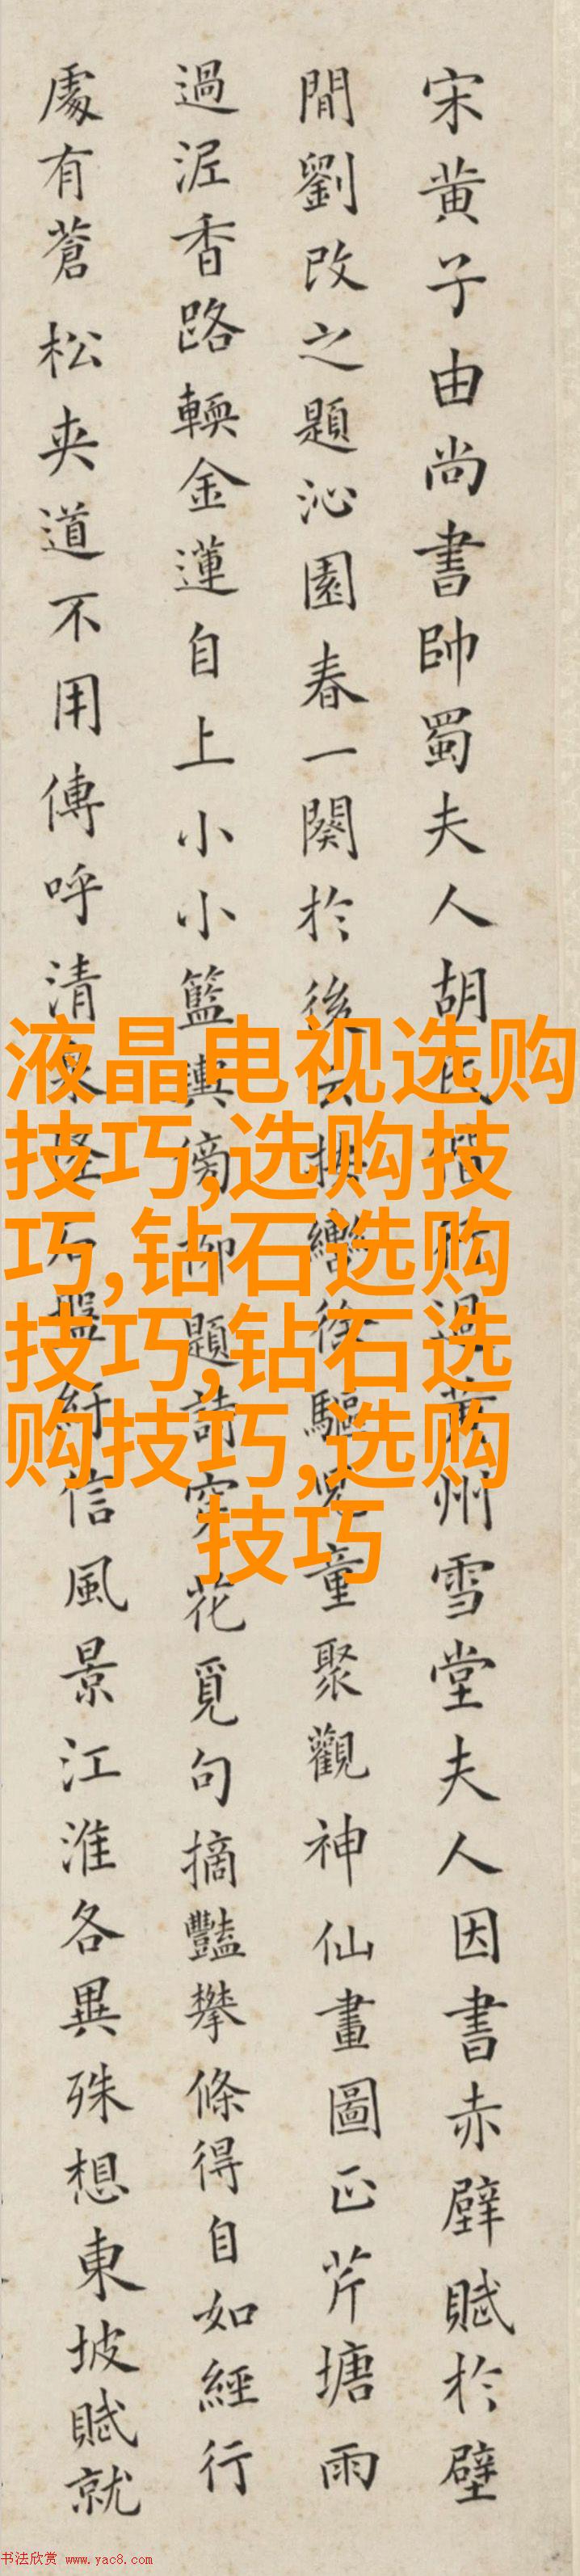 宋黄子由尚書帥蜀夫人胡氏偕行過黄州雪堂夫人因書赤壁賦於壁
間劉改之題沁園春一闋於後云按轡徐驅兒童聚觀神仙畫圖正芹塘雨
過泥香路輭金蓮自上小小籃輿傍柳題詩穿花覓句摘豔攀條得自如經行
處有蒼松夾道不用傳呼清泉怪石盤紆信風景江淮各異殊想東坡賦就
液晶电视选购
技巧,选购技
巧,钻石选购
技巧,钻石选
购技巧,选购
技巧
书法欣赏 www.yac8.com